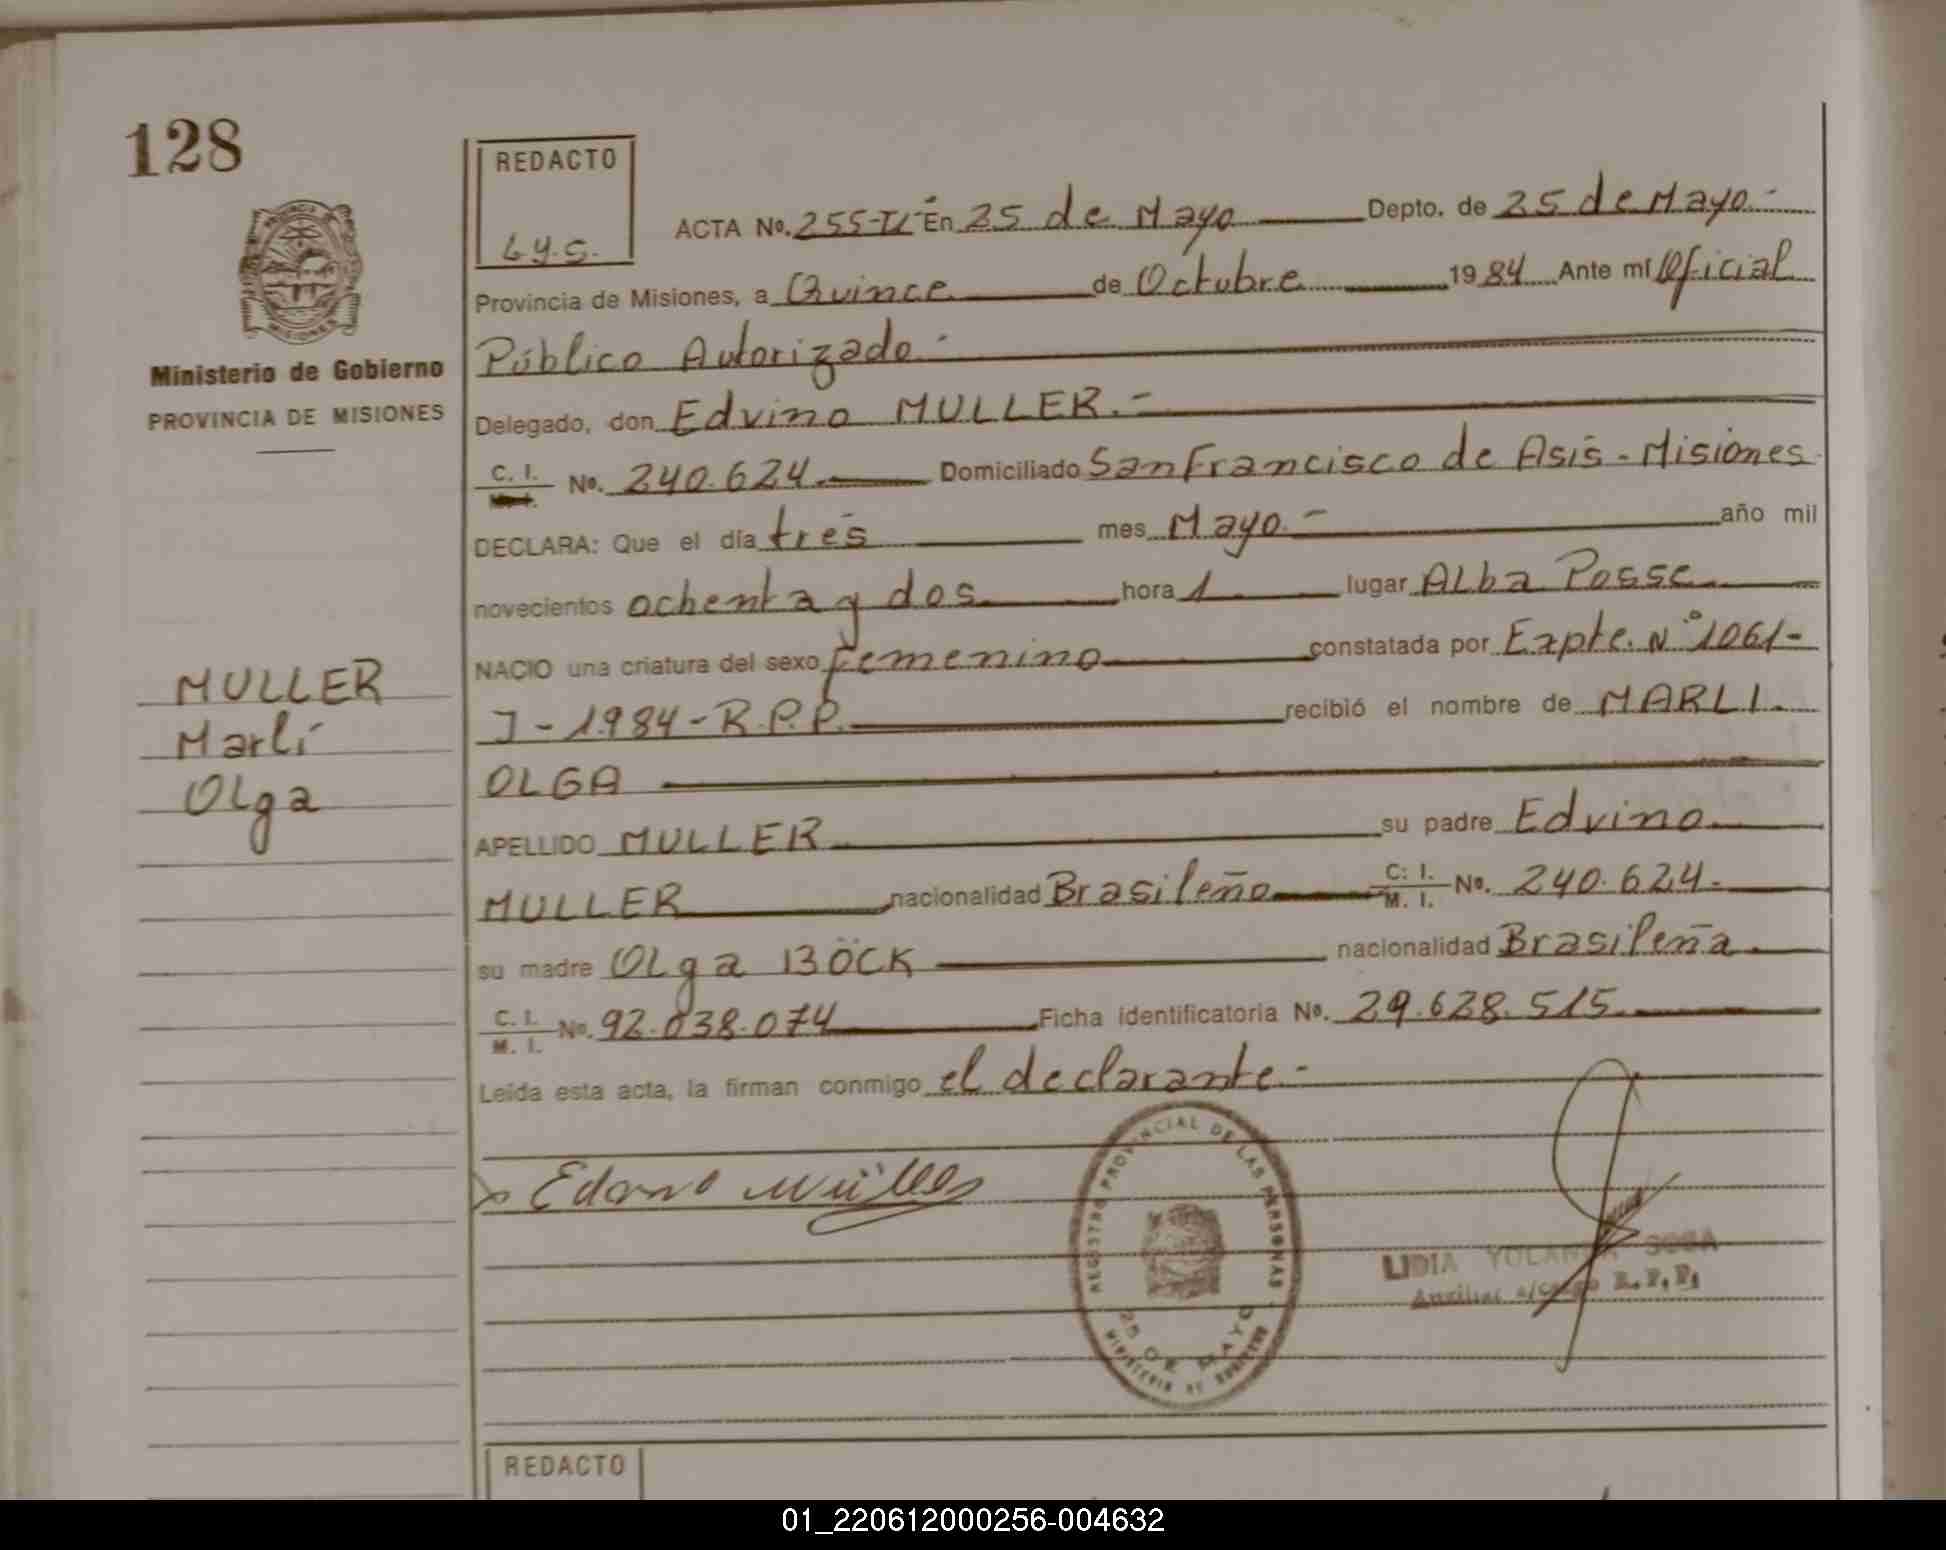 128
REDACTO
L.y.S.
Ministerio de Gobierno
PROVINCIA DE MISIONES
MULLER
Marlí
Olga
ACTA No. 255-TI- En 25 de Mayo Depto. de 25 de Mayo.-
Provincia de Misiones, a Quince de Octubre 1984 Ante mí Oficial
Público Autorizado.-
Delegado, don Edvino MULLER.-
C. I. No. 240.624. Domiciliado San Francisco de Asís - Misiones.
DECLARA: Que el día tres mes Mayo.- año mil
novecientos ochenta y dos hora 1 lugar Alba Posse
NACIO una criatura del sexo femenino constatada por Expte. N° 1061-
J-1984-R.P.P. recibió el nombre de MARLI.
OLGA
APELLIDO MULLER su padre Edvino
MULLER nacionalidad Brasileño C. I. M. I. No. 240.624.
su madre Olga BÖCK nacionalidad Brasileña
C. I. M. I. No. 92.038.074 Ficha identificatoria No. 29.628.515
Leída esta acta, la firman conmigo el declarante.-
Edvino Müller
REGISTRO PROVINCIAL DE LAS PERSONAS
25 DE MAYO
MINISTERIO DE GOBIERNO
LIDIA YOLANDA SOSA
Auxiliar a/cargo R.P.P.
REDACTO
01_220612000256-004632